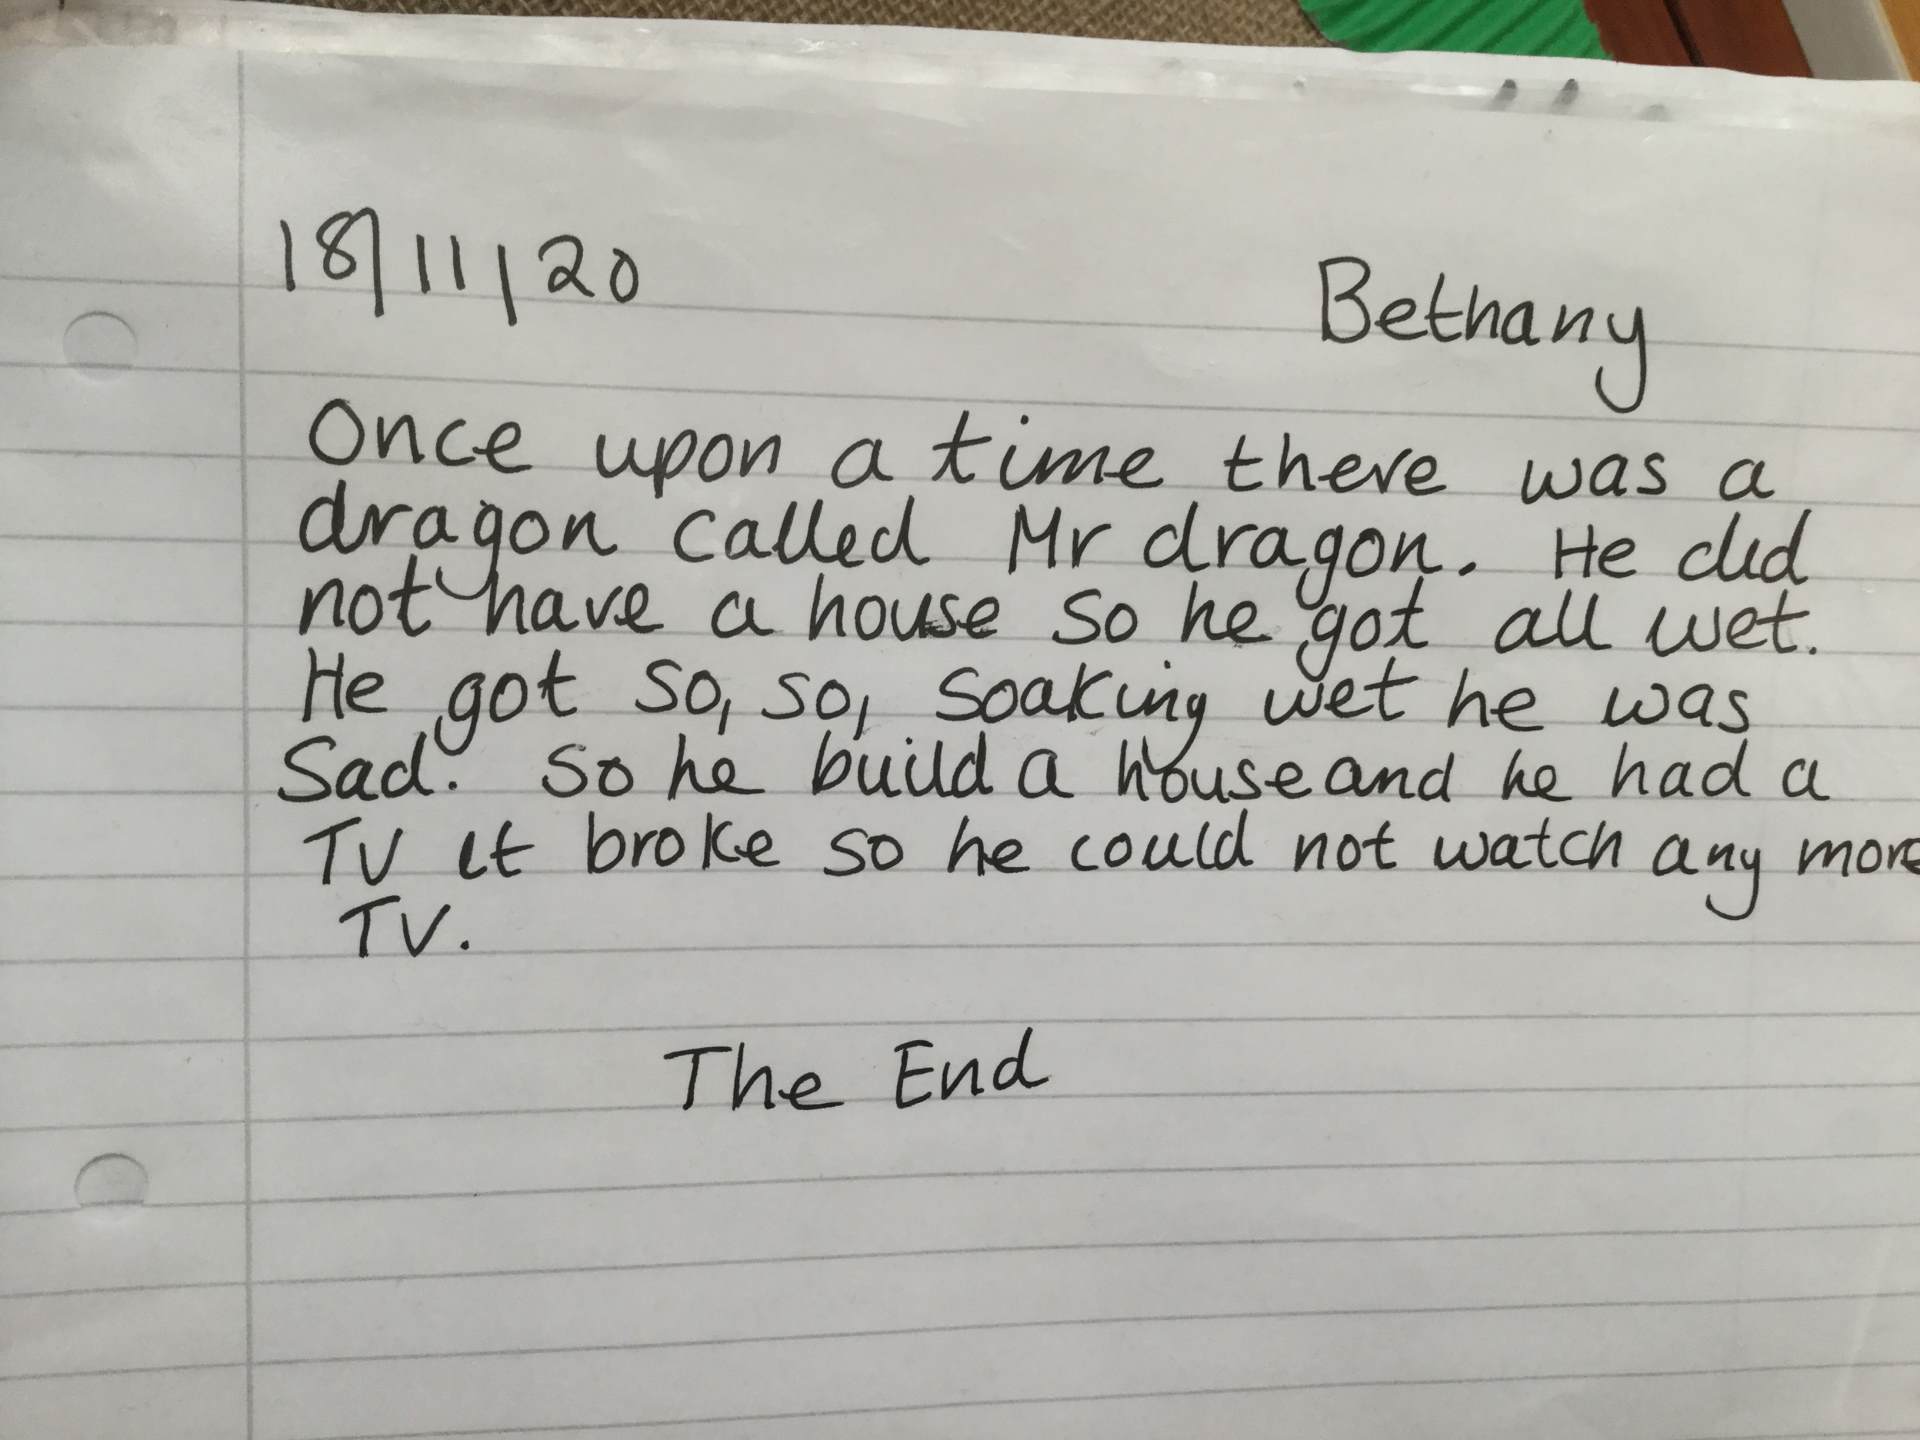 18/11/20
Bethany
Once upon a time there was a
dragon called Mr dragon. He did
not have a house so he got all wet.
He got so, so, soaking wet he was
Sad. So he build a house and he had a
TV it broke so he could not watch any more
TV.
The End